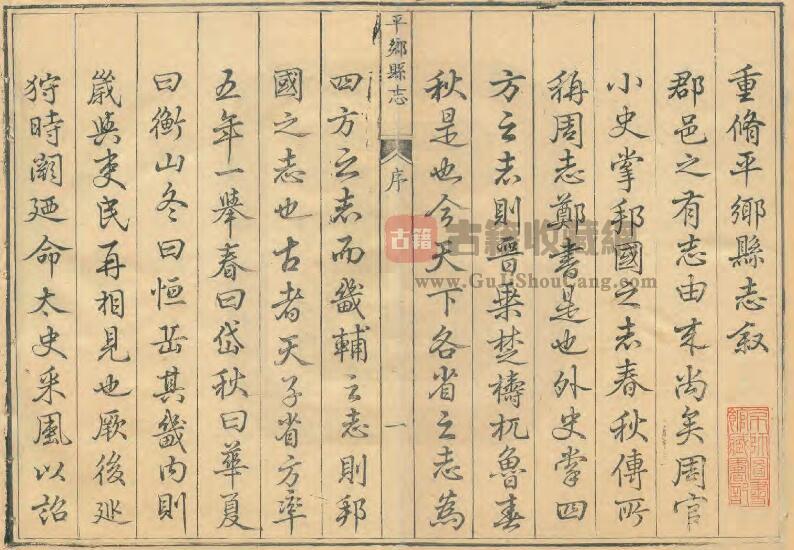 重脩平鄉縣志叙
郡邑之有志由来尚矣周官
小史掌邦國之志春秋傳所
稱周志鄭書是也外史掌四
方之志則晉乗楚檮杌魯春
秋是也今天下各省之志為
平鄉縣志
序
一
四方之志而畿輔之志則邦
國之志也古者天子省方率
五年一舉春曰岱秋曰華夏
曰衡山冬曰恒岳其畿内則
嵗與吏民再相見也厥後廵
狩時闕廼命太史采風以詔
古籍
古籍收藏網
www.GuJiShouCang.com